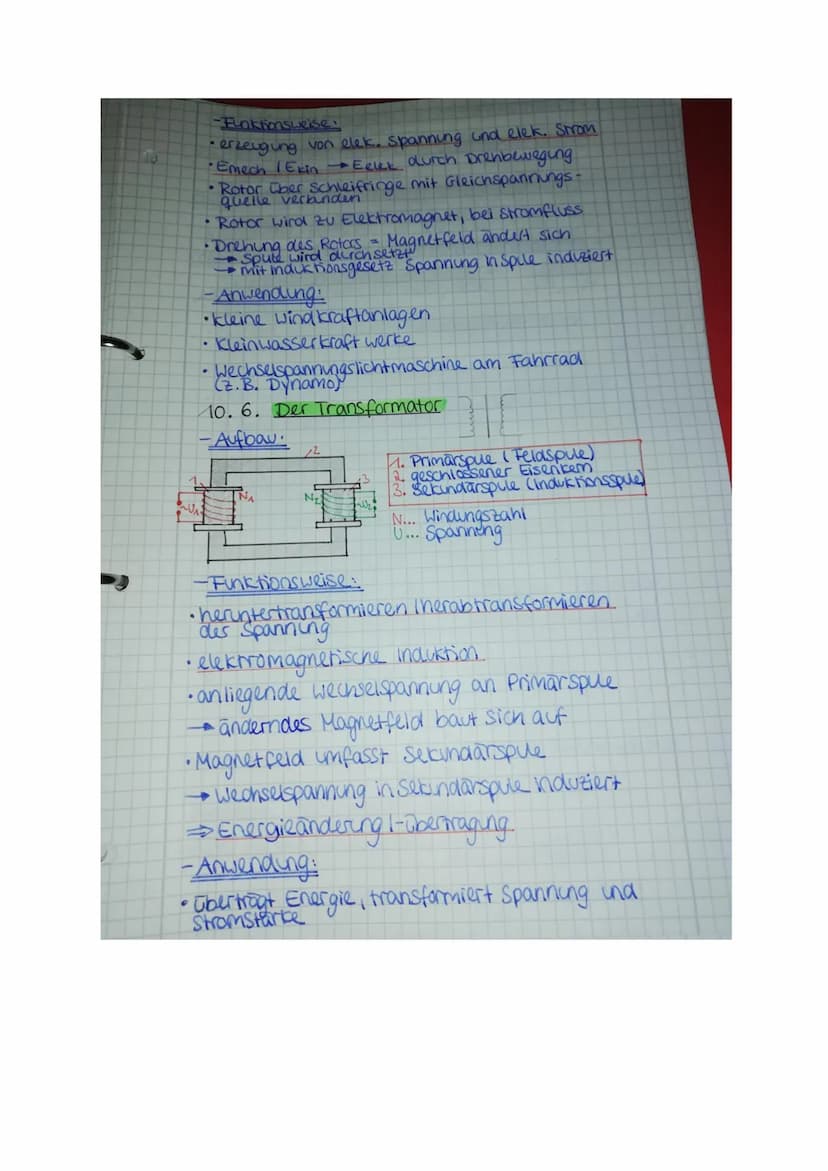 - Funktionsweise:
• erzeugung von elek. Spannung und elek. Strom
• Emech / Ekin → Eelek durch Drehbewegung
• Rotor über Schleifringe mit Gleichspannungs-
quelle verbinden
• Rotor wird zu Elektromagnet, bei Stromfluss
• Drehung des Rotors = Magnetfeld ändert sich
→ Spule wird durchsetzt
→ mit Induktionsgesetz Spannung in Spule induziert
- Anwendung:
• kleine Windkraftanlagen
• Kleinwasserkraftwerke
• Wechselspannungslichtmaschine am Fahrrad
(z.B. Dynamo)
10. 6. Der Transformator
- Aufbau:
2
1 N1 N2 3
~U1 ~U2
1. Primärspule (Feldspule)
2. geschlossener Eisenkern
3. Sekundärspule (Induktionsspule)
N... Windungszahl
U... Spannung
- Funktionsweise:
• heruntertransformieren / herabtransformieren
der Spannung
• elektromagnetische Induktion
• anliegende Wechselspannung an Primärspule
→ änderndes Magnetfeld baut sich auf
• Magnetfeld umfasst Sekundärspule
→ Wechselspannung in Sekundärspule induziert
⇒ Energieänderung /-übertragung
- Anwendung:
• überträgt Energie, transformiert Spannung und
Stromstärke